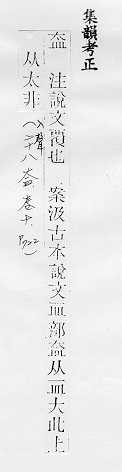 集韻考正
盇 注說文覆也 案汲古本說文血部盇从血大此上
从太非(入聲二十八盇,卷十,P.22)